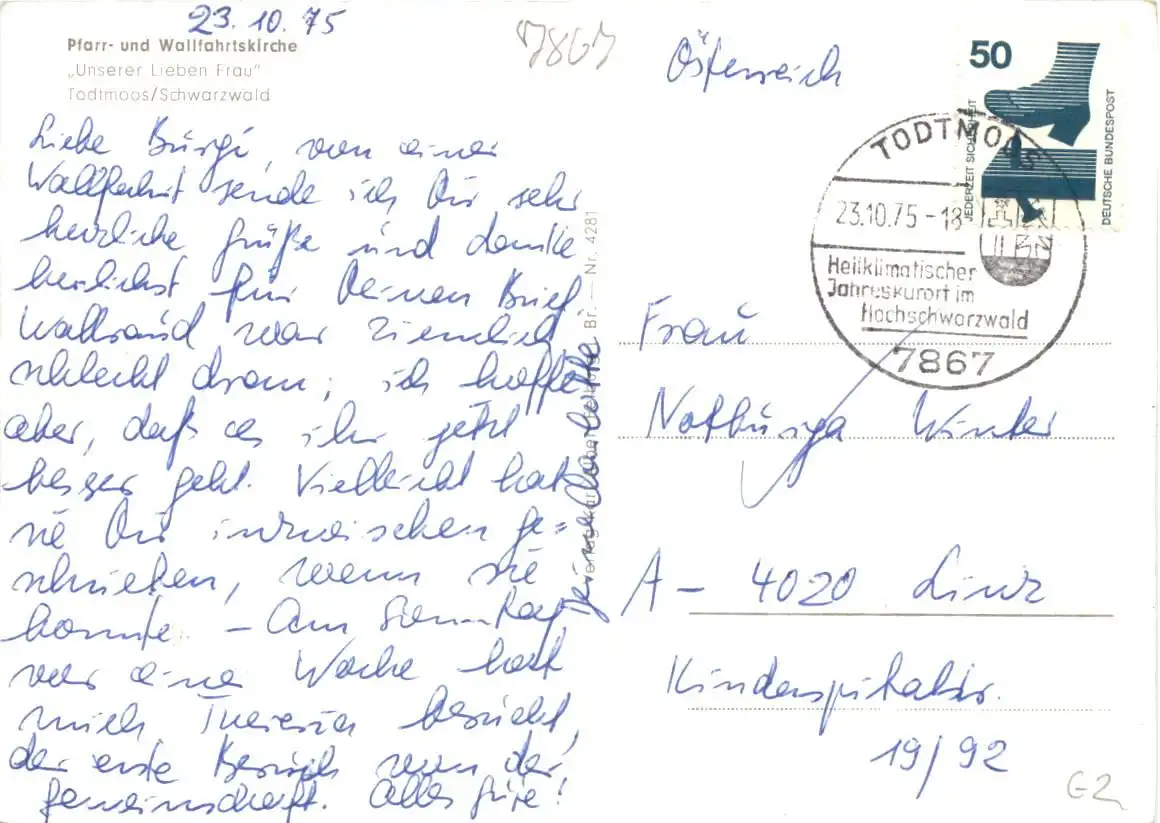 23.10.75
7867
Pfarr- und Wallfahrtskirche
„Unserer Lieben Frau“
Todtmoos/Schwarzwald
Liebe Burgi, von einer
Wallfahrt sende ich Dir sehr
herzliche Grüße und danke
herzlichst für Deinen Brief.
war ziemlich
schlecht dran; ich hoffe
aber, daß es ihr jetzt
besser geht. Vielleicht hat
sie Dir inzwischen ge=
schrieben, wenn sie
konnte. – Am Sonntag
vor einer Woche hat
mich Theresia besucht,
der erste Besuch von der
Gemeinschaft. Alles Gute!
Deine
Br. — Nr. 4281
Österreich
50
JEDERZEIT SICHERHEIT
DEUTSCHE BUNDESPOST
TODTMOOS
23.10.75-18
Heilklimatischer
Jahreskurort im
Hochschwarzwald
7867
Frau
Notburga Winter
A - 4020 Linz
Kinderspitalstr.
19/92
G2